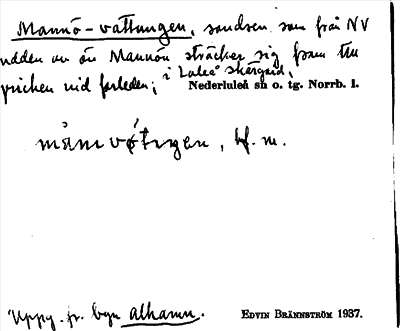 Mannö-vattungen, sandsen som från NV
udden av ön Mannön sträcker sig fram till
pricken vid farleden; i Luleå skärgård,
Nederluleå sn o. tg. Norrb. l.
bf. m.
Uppg. fr. byn alhamn.
EDVIN BRÄNNSTRÖM 1937.